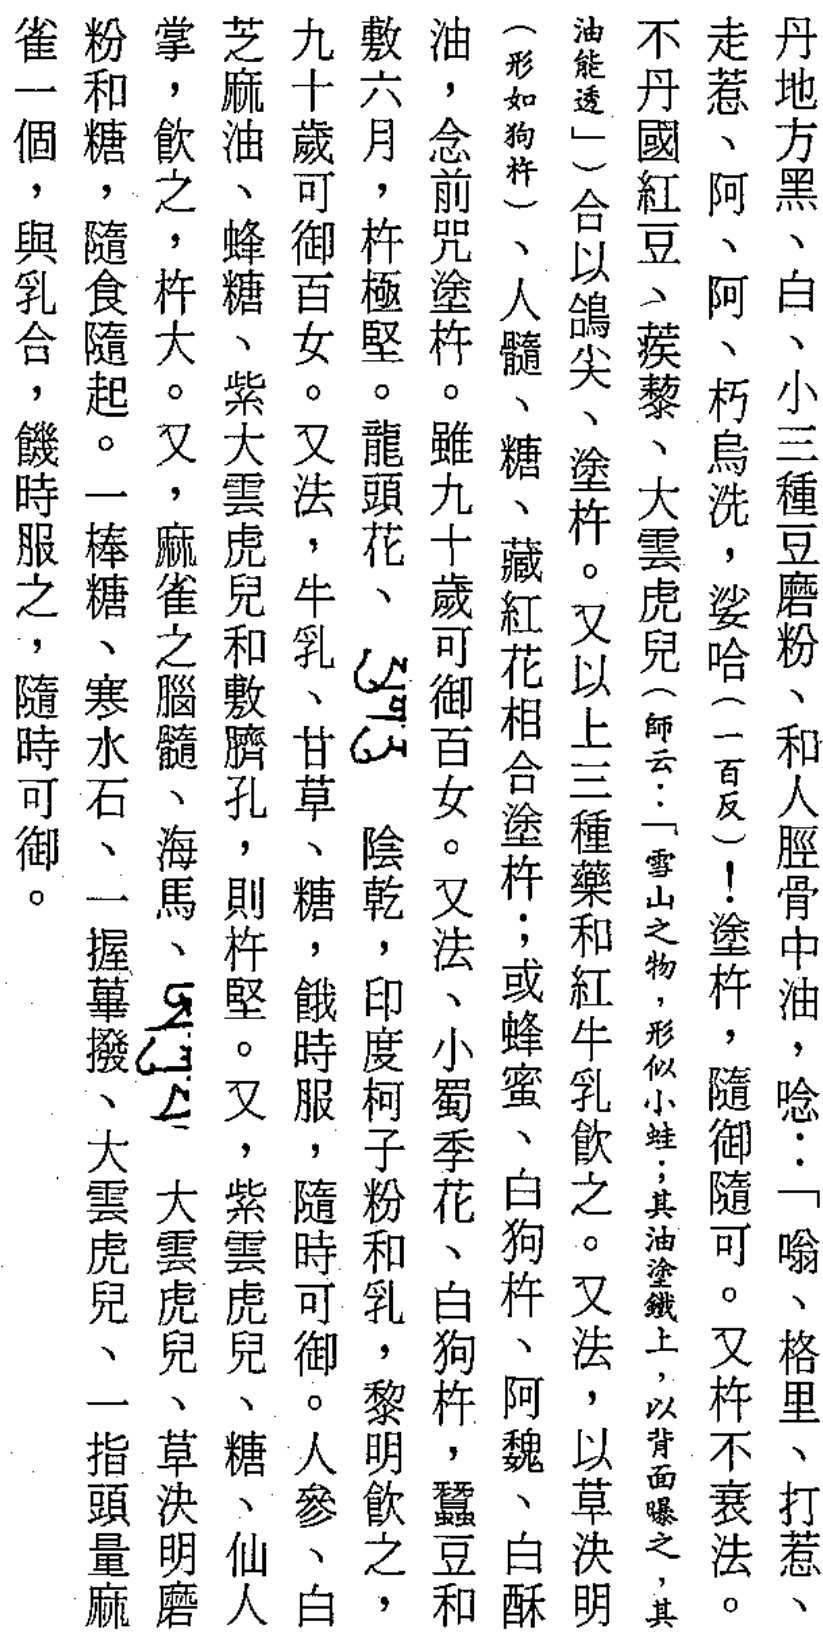 丹地方黑、白、小三種豆磨粉、和人脛骨中油，唸：「嗡、格里、打惹、
走惹、阿、阿、朽烏洗，娑哈（一百反）！塗杵，隨御隨可。又杵不衰法。
不丹國紅豆、蒺藜、大雲虎兒（師云：「雪山之物，形似小蛙；其油塗鐵上，以背面曝之，其
油能透」）合以鴿尖、塗杵。又以上三種藥和紅牛乳飲之。又法，以草決明
（形如狗杵）、人髓、糖、藏紅花相合塗杵；或蜂蜜、白狗杵、阿魏、白酥
油，念前咒塗杵。雖九十歲可御百女。又法、小蜀季花、白狗杵，蠶豆和
敷六月，杵極堅。龍頭花、 陰乾，印度柯子粉和乳，黎明飲之，
九十歲可御百女。又法，牛乳、甘草、糖，餓時服，隨時可御。人參、白
芝麻油、蜂糖、紫大雲虎兒和敷臍孔，則杵堅。又，紫雲虎兒、糖、仙人
掌，飲之，杵大。又，麻雀之腦髓、海馬、 大雲虎兒、草決明磨
粉和糖，隨食隨起。一棒糖、寒水石、一握蓽撥、大雲虎兒、一指頭量麻
雀一個，與乳合，饑時服之，隨時可御。